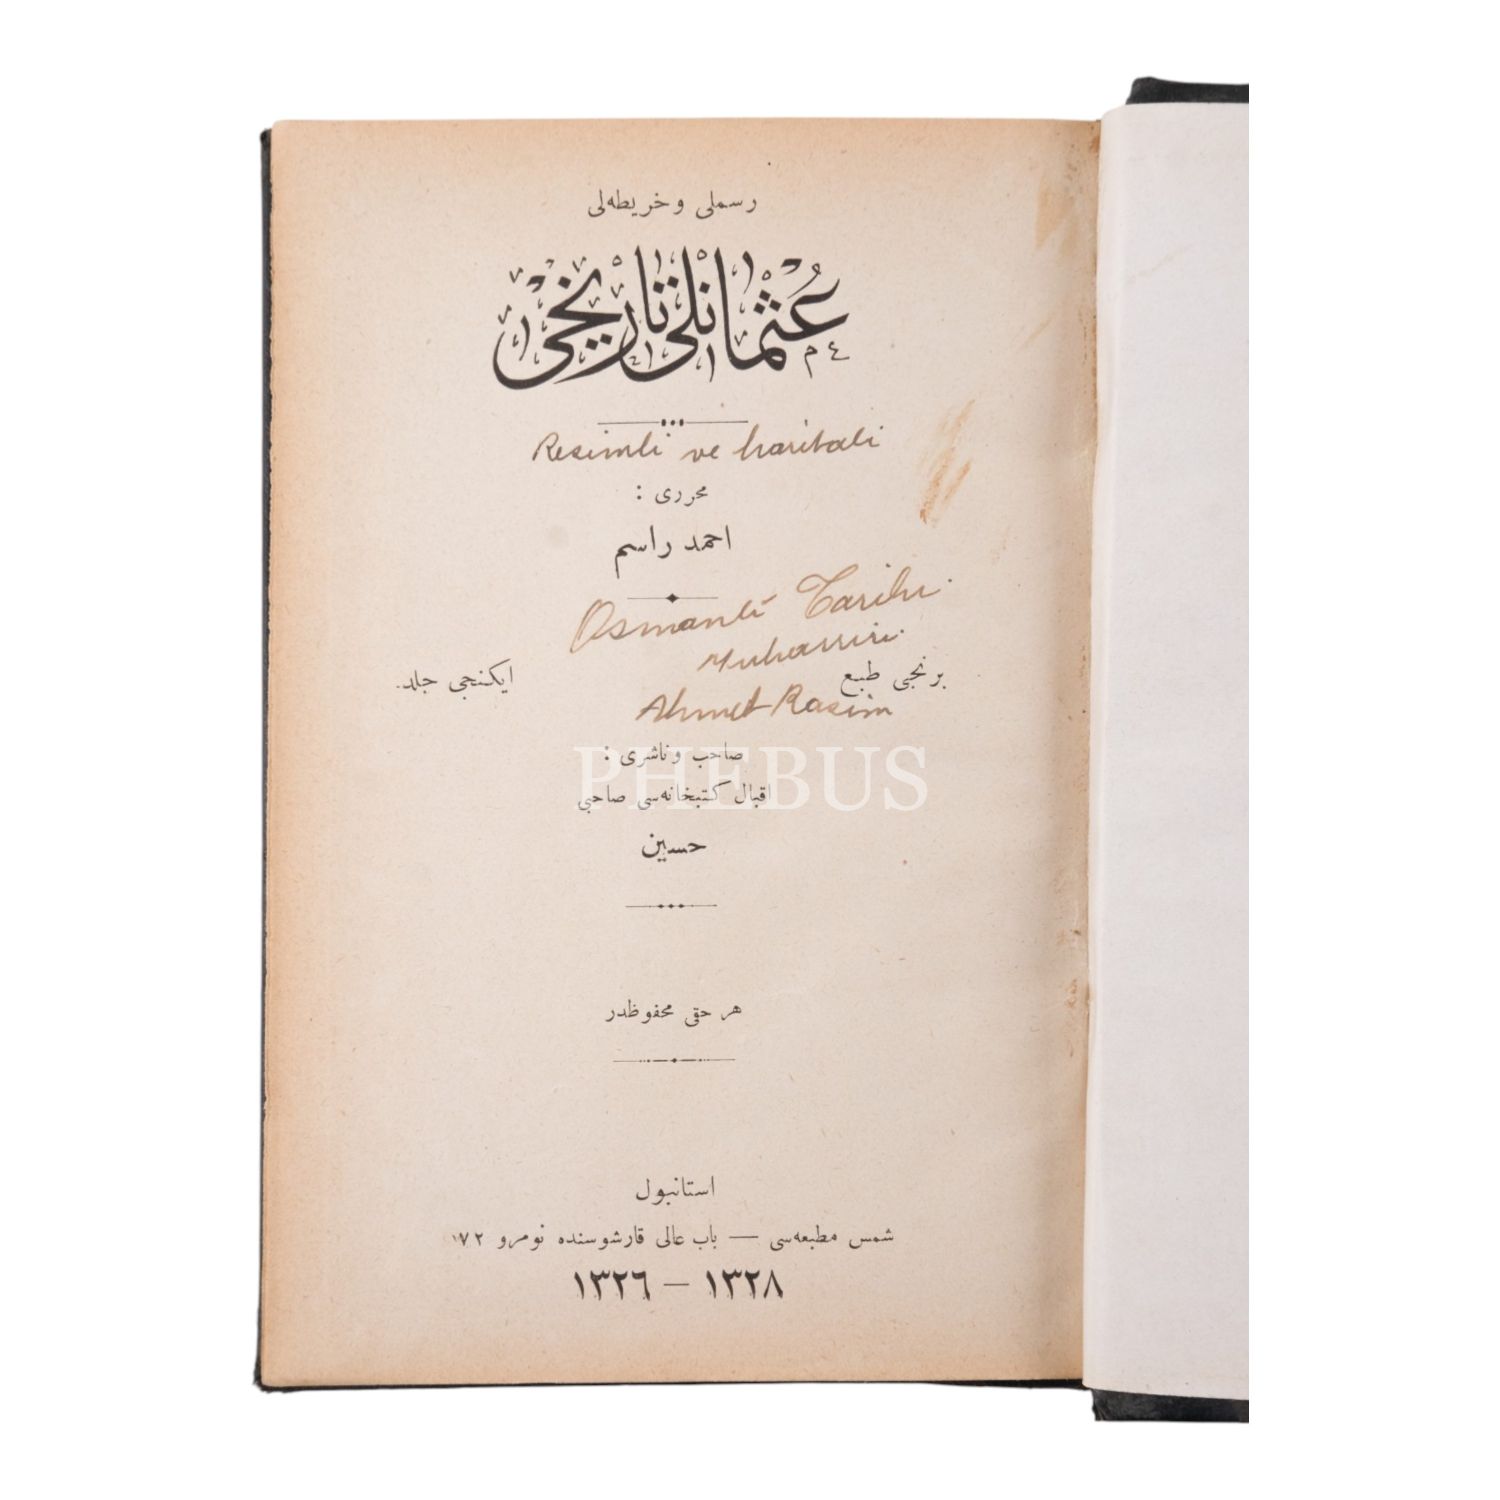 رسملی و خریطه‌لی
عُثمانلی تاریخی
Resimli ve haritalı
محرری :
احمد راسم
Osmanlı Tarihi
Muharriri
برنجی طبع
ایکنجی جلد
Ahmet Rasim
صاحب و ناشری :
PHEBUS
اقبال کتبخانه‌سی صاحبی
حسین
هر حقی محفوظدر
استانبول
شمس مطبعه‌سی — باب عالی قارشوسنده نومرو ۱۷۲
١٣٢٦ — ١٣٢٨